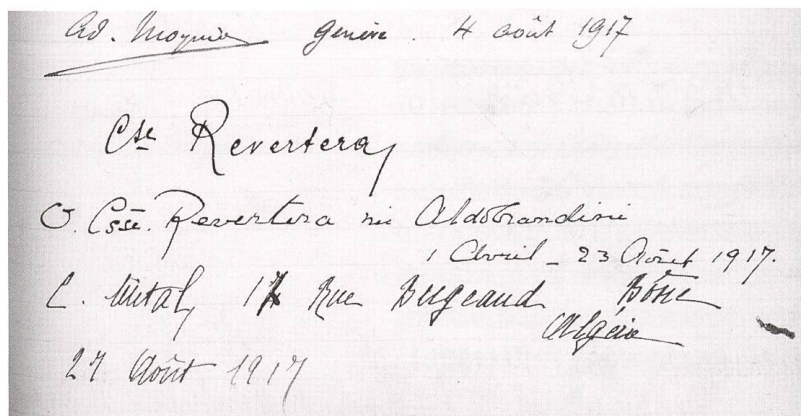 Ad. Moynier Genève 4 août 1917
Cte Revertera
O. Csse. Revertera née Aldobrandini
1 Avril - 23 Août 1917.
C. 17 Rue Bugeaud Bône
Algérie
27 Août 1917